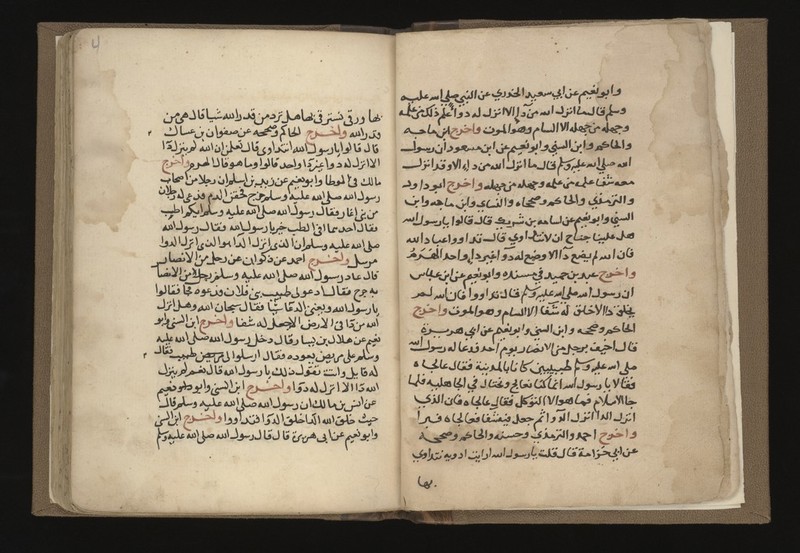 وابو نعيم عن ابي سعيد الخدري عن النبي صلي الله عليه
وسلم قال ما انزل الله من دآ الا انزل له دوآ علم ذلك من علمه
وجهله من جهله الا السام وهو الموت واخرج ابن ماجه
والحاكم وابن السني وابو نعيم عن ابن مسعود ان رسول
الله صلي الله عليه وسلم قال ما انزل الله من دآ الا وقد انزل
معه شفا علمه من علمه وجهله من جهله واخرج ابو داود
والترمذي والحاكم وصححاه والنساي وابن ماجه وابن
السني وابو نعيم عن اسامه بن شريك قال قالوا يا رسول الله
هل علينا جناح ان لا نتداوي قال تداووا عباد الله
فان الله لم يضع دآ الا وضع له دوآ غير دآ واحد الهرم
واخرج عبد بن حميد في مسنده وابو نعيم عن ابن عباس
ان رسول الله صلي الله عليه وسلم قال تداووا فان الله لم
يخلق دآ الا خلق له شفآ الا السام وهو الموت واخرج
الحاكم وصححه وابن السني وابو نعيم عن ابي هريرة
قال اخيف برجل من الانصار يوم احد فدعا له رسول الله
صلي الله عليه وسلم طبيبين كانا بالمدينة فقال عالجاه
فقالا يا رسول الله انما كنا نعالج ونحتال في الجاهلية فلما
جا الاسلام فما هو الا التوكل فقال عالجاه فان الذي
انزل الدآ انزل الدوآ ثم جعل فيه شفا فعالجاه فبرأ
واخرج احمد والترمذي وحسنه والحاكم وصححه
عن ابي خزامة قال قلت يا رسول الله ارايت ادوية نتداوي
بها
4
بها ورقي نسترقي بها هل ترد من قدر الله شيا قال هي من
قدر الله واخرج الحاكم وصححه عن صفوان بن عسال
قال قالوا يا رسول الله انتداوي قال تعلمن ان الله لم ينزل دآ
الا انزل له دوآ غير دآ واحد قالوا وما هو قال الهرم واخرج
مالك في الموطا وابو نعيم عن زيد بن اسلم ان رجلا من اصحاب
رسول الله صلي الله عليه وسلم جرح فحقن الدم فدعي له رجلان
من بني انمار فقال رسول الله صلي الله عليه وسلم ايكم اطب
فقال احدهما افي الطب خير يا رسول الله فقال رسول الله
صلي الله عليه وسلم ان الذي انزل الدآ هو الذي انزل الدوا
مرسل واخرج احمد عن ذكوان عن رجل من الانصار
قال عاد رسول الله صلي الله عليه وسلم رجلا من الانصار
به جرح فقال ادعوا لي طبيب بني فلان فدعوه فجا فقالوا
يا رسول الله ويغني الدوآ شيا فقال سبحان الله وهل انزل
الله من دآ في الارض الا جعل له شفا واخرج ابن السني وابو
نعيم عن هلال بن يساف قال دخل رسول الله صلي الله عليه
وسلم علي مريض يعوده فقال ارسلوا الي طبيب فقال
له قايل وانت تقول ذلك يا رسول الله قال نعم لم ينزل
الله دآ الا انزل له دوآ واخرج ابن السني وابو نعيم
عن انس بن مالك ان رسول الله صلي الله عليه وسلم قال
حيث خلق الله الدآ خلق الدوآ فتداووا واخرج ابن السني
وابو نعيم عن ابي هريرة قال قال رسول الله صلي الله عليه وسلم